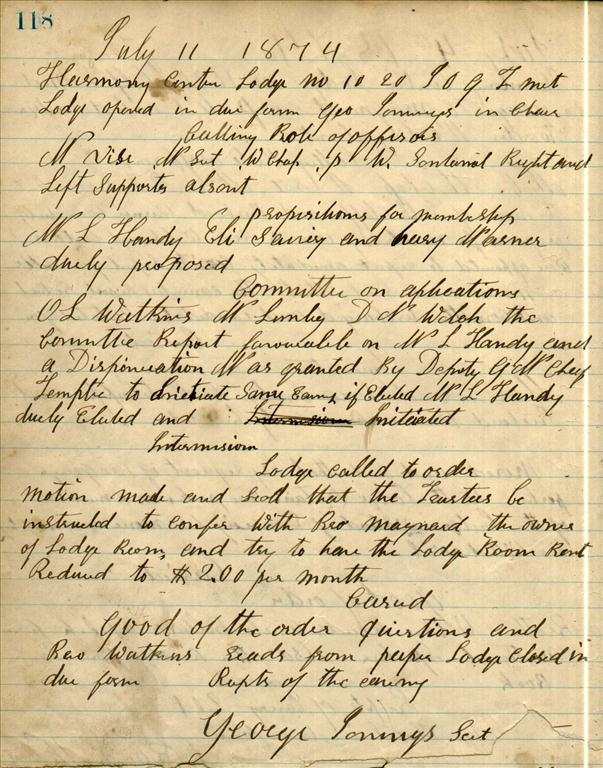 118
July 11 1874
Harmony Center Lodge no 10 20 I O G T met
Lodge opened in due form Geo in Chair
Calling Role of officers
W Vise W Sect W Chap. P W. Sentanal Right and
Left Supporter absent
propositions for membership
W L Handy Eli and Warner
duely proposed
Committee on aplications
O L Watkins W D W Welch the
Committe Report favourable on W L Handy and
a Was granted By Deputy G W Cheif
Templer to initiate Same Eavng if Elected W L Handy
duely Elected and Intermision Initiated
Intermision
Lodge called to order
Motion made and Secd that the Trustees be
instructed to confer with Bro Maynard the owner
of Lodge Room, and try to have the Lodge Room Rent
Reduced to $2.00 per month
Caried
Good of the order questions and
Bro Watkins Reads from paper Lodge Closed in
due form of the evening
George Sect